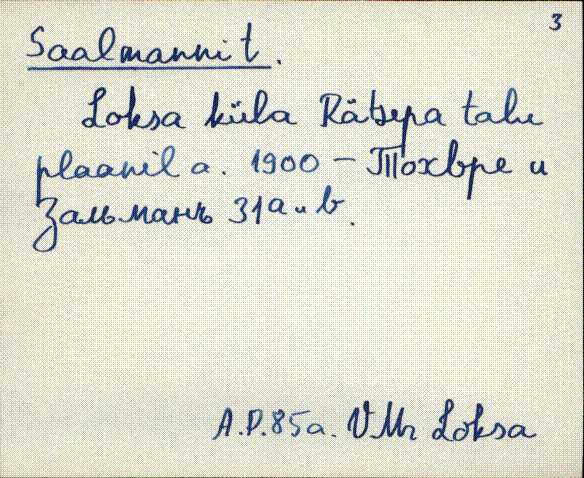 3
Saalmanni t.
Loksa küla Rätsepa talu
plaanil a. 1900 - Тохвре и
Зальманъ 31а и b.
A.P. 85a. VMr Loksa